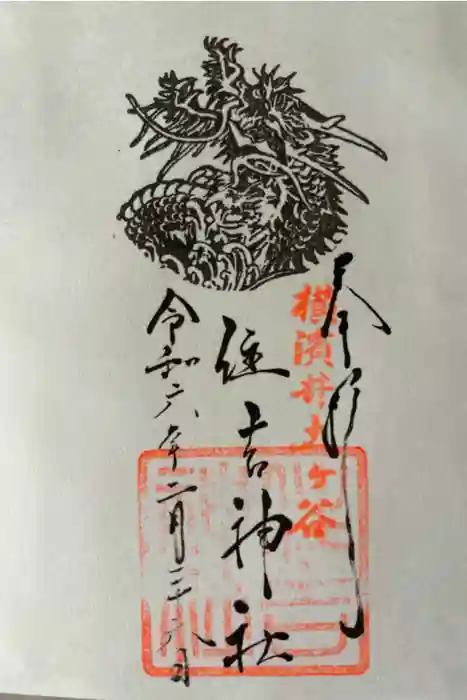 奉拝
横濱井土ヶ谷
住吉神社
令和六年二月二十六日